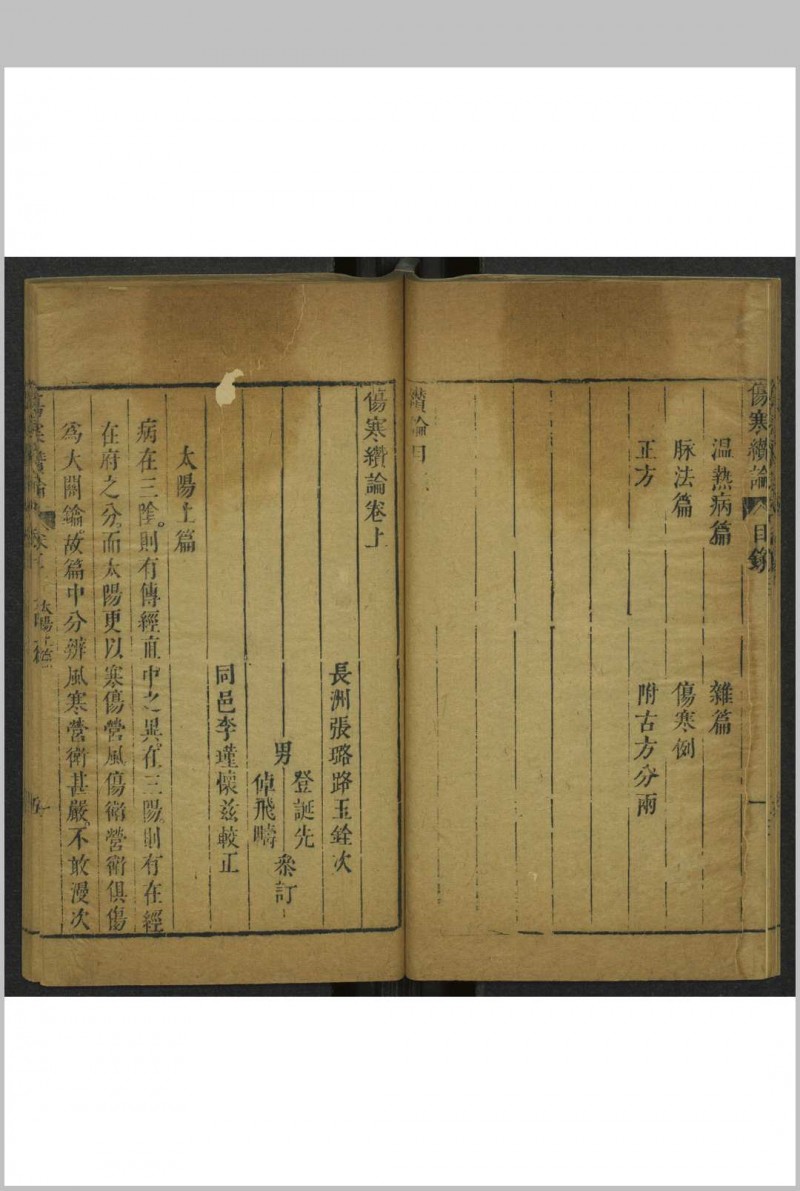 傷寒纘論 目錄
溫熱病篇 雜篇
脉法篇 傷寒例
正方 附古方分兩
傷寒纘論卷上
長洲張璐路玉銓次
登誕先
男 叅訂
倬飛疇
同邑李瑾懷兹較正
太陽上篇
病在三陰。則有傳經直中之異。在三陽。則有在經
在府之分。而太陽更以寒傷營風傷衛營衛俱傷
為大關鑰。故篇中分辨風寒營衛甚嚴。不敢漫次
傷寒纘論 太陽上篇